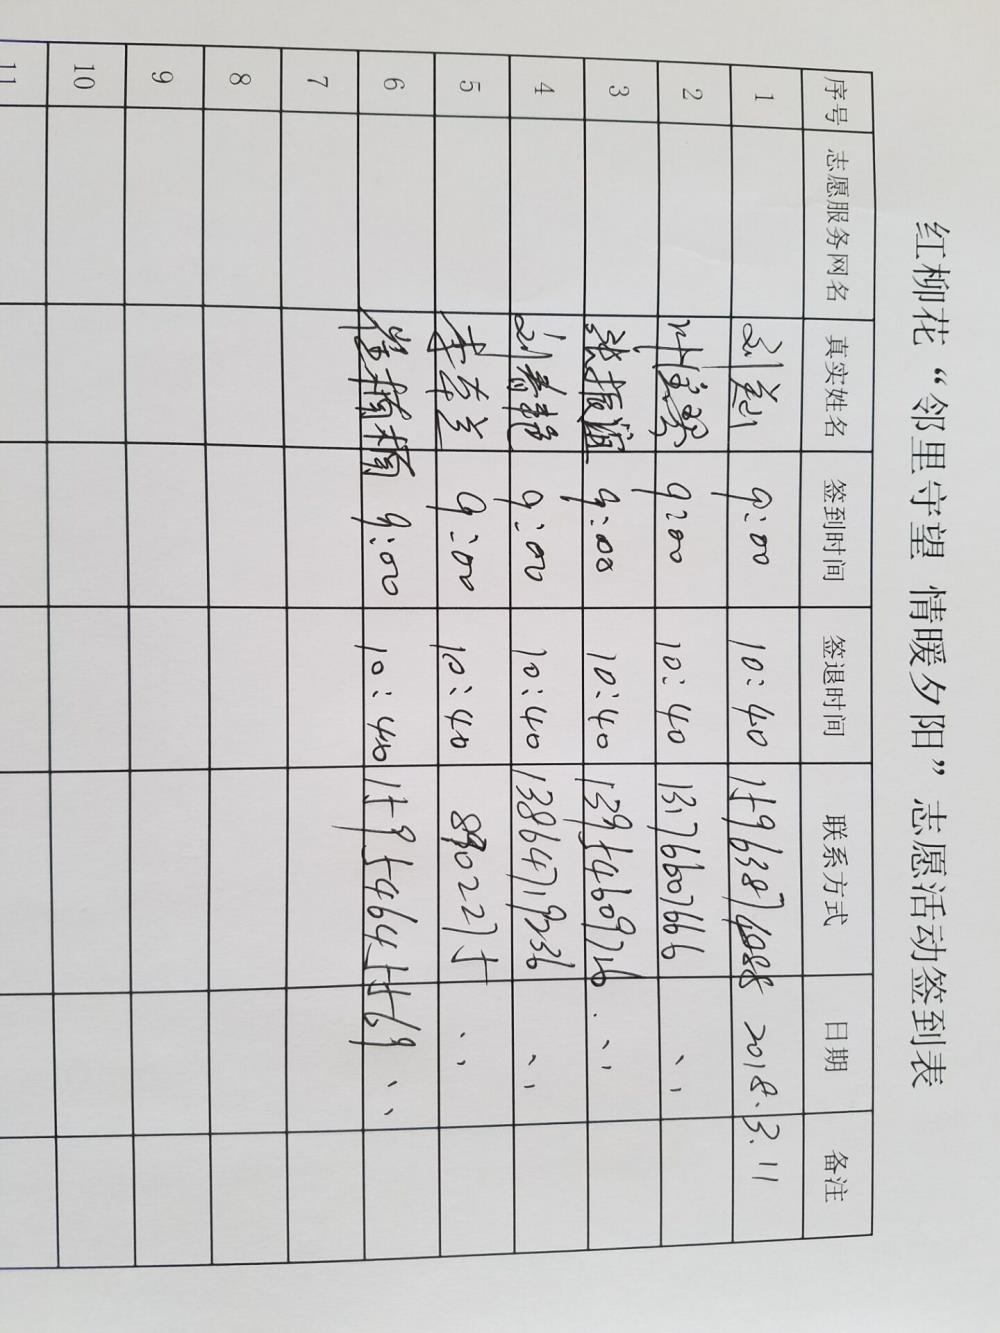 红柳花“邻里守望 情暖夕阳”志愿活动签到表
序号 志愿服务网名 真实姓名 签到时间 签退时间 联系方式 日期 备注
1 9:00 10:40 15963874088 2018.3.11
2 9:00 10:40 13176607666 、、
3 张振 9:00 10:40 13954609726 、、
4 刘春艳 9:00 10:40 13864719236 、、
5 李春兰 9:00 10:40 8902275 、、
6 9:00 10:40 15954645569 、、
7
8
9
10
11